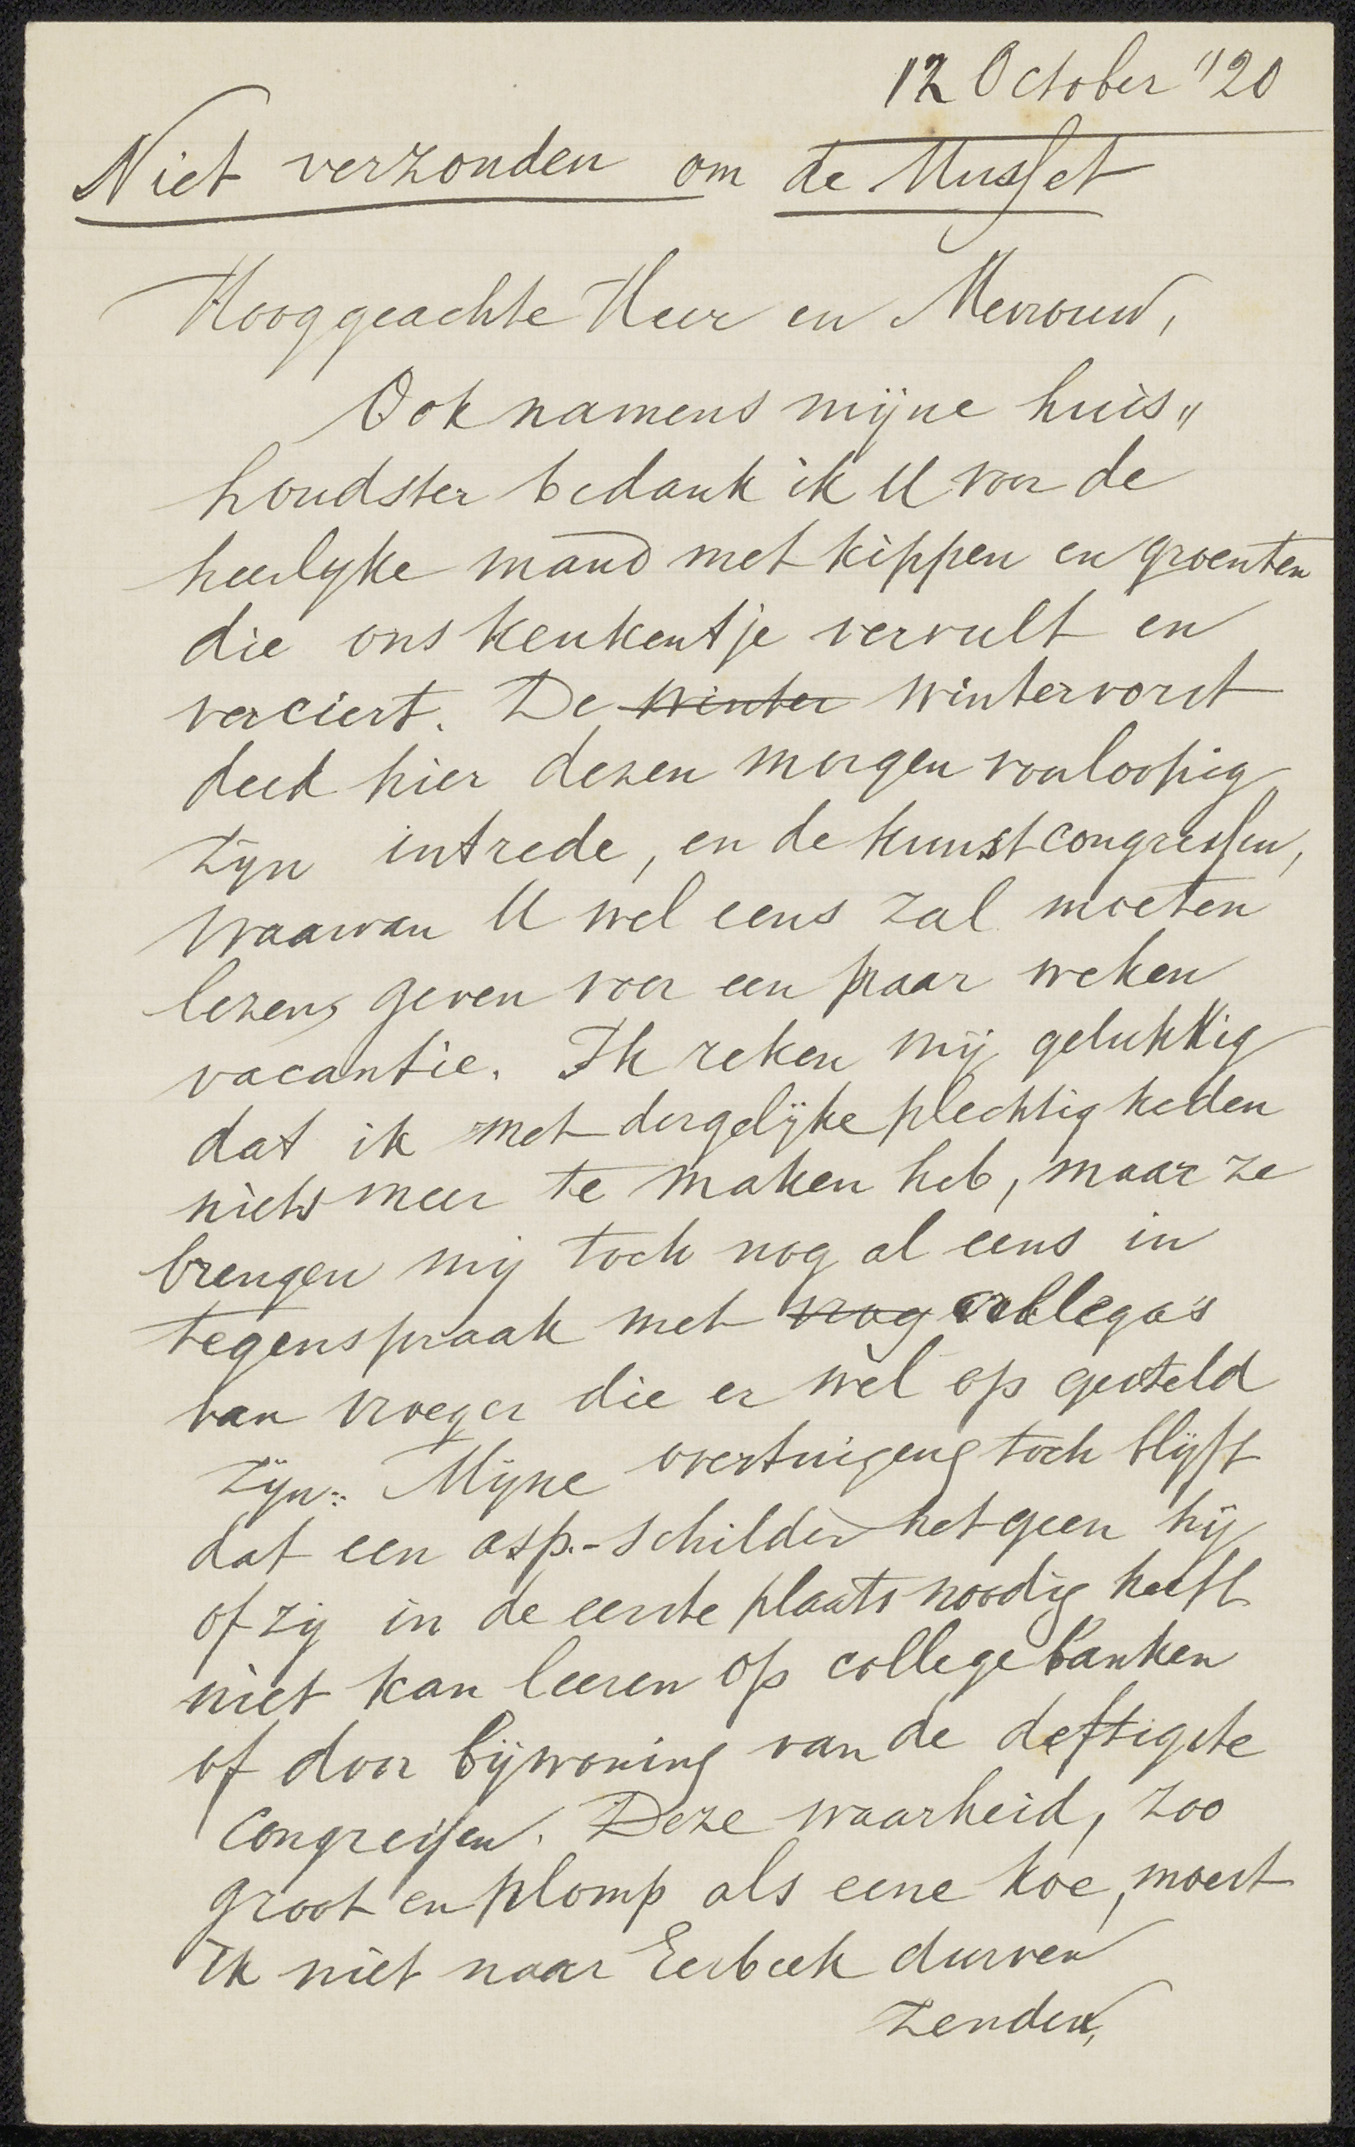 12 October "20
Niet verzonden om de Musset
Hooggeachte Heer en Mevrouw,
Ook namens mijne huis„
houdster bedank ik U voor de
heerlyke mand met kippen en groenten
die ons keukentje vervult en
verciert. De winter wintervorst
deed hier dezen morgen voorloopig
zijn intrede, en de kunstcongressen,
waarvan U wel eens zal moeten
lezen, geven voor een paar weken
vacantie. Ik reken mij gelukkig
dat ik met dergelijke plechtigheden
niets meer te maken heb, maar ze
brengen mij toch nog al eens in
tegenspraak met vroeg collega's
van vroeger die er wèl op gesteld
zijn. Mijne overtuiging toch blijft
dat een asp.-schilder hetgeen hij
of zij in de eerste plaats noodig heeft
niet kan leeren op collegebanken
of door bijwoning van de deftigste
congressen. Deze waarheid, zoo
groot en plomp als eene koe, moest
ik niet naar Eerbeek durven
zenden,